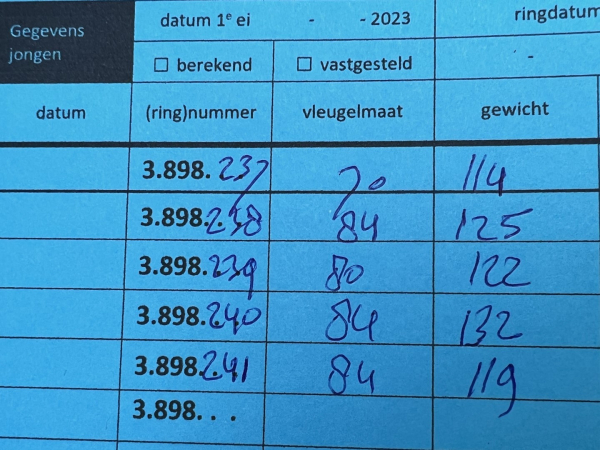 Gegevens jongen
datum 1e ei - - 2023
ringdatum
☐ berekend ☐ vastgesteld -
datum (ring)nummer vleugelmaat gewicht
3.898.237 70 114
3.898.238 84 125
3.898.239 80 122
3.898.240 84 132
3.898.241 84 119
3.898. . .